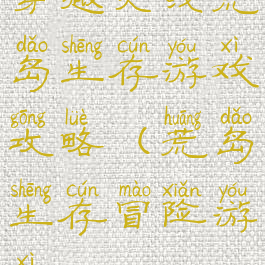 dǎo shēng cún yóu xì
岛生存游戏
gōng lüè huāng dǎo
攻略（荒岛
shēng cún mào xiǎn yóu
生存冒险游
xì